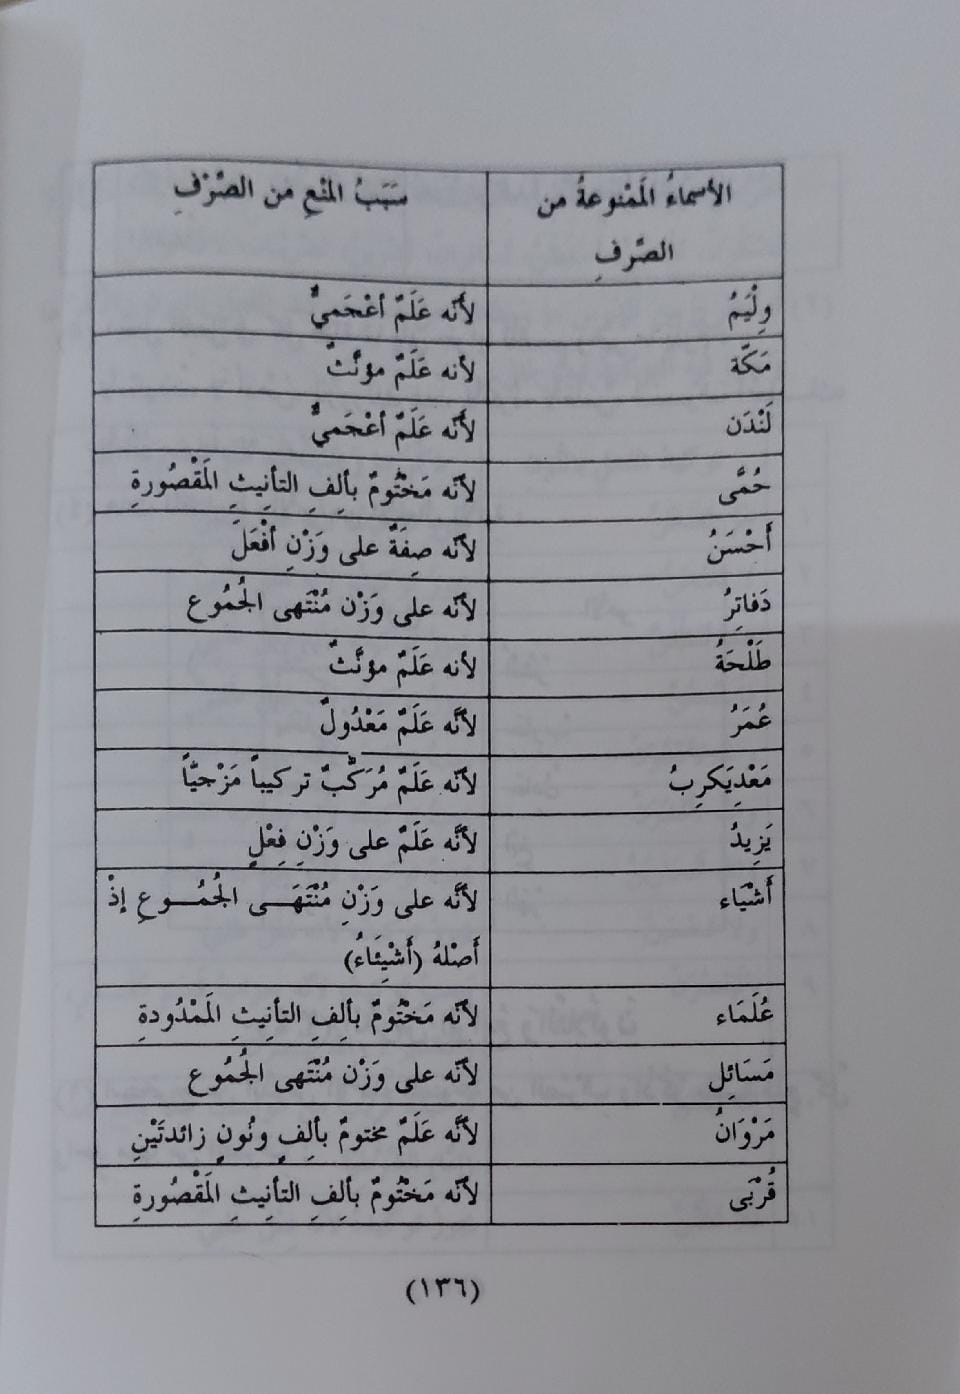 الأسماءُ المَمْنوعةُ من الصَّرفِ سَبَبُ المَنْعِ من الصَّرْفِ
وِلْيَمُ لأنّه عَلَمٌ أعْجَميٌّ
مَكّة لأنه عَلَمٌ مؤنَّثٌ
لَنْدَن لأنّه عَلَمٌ أعْجَميٌّ
حُمَّى لأنّه مَخْتُومٌ بألِفِ التأنِيثِ المَقْصُورةِ
أَحْسَنُ لأنّه صِفَةٌ على وَزْنِ أفْعَلَ
دَفاتِرُ لأنّه على وَزْن مُنْتَهى الجُمُوع
طَلْحَةُ لأنه عَلَمٌ مؤنَّثٌ
عُمَرُ لأنَّه عَلَمٌ مَعْدُولٌ
مَعْدِيَكرِبُ لأنّه عَلَمٌ مُرَكّبٌ تركيباً مَزْجيّاً
يَزِيدُ لأنَّه عَلَمٌ على وَزْنِ فِعْلٍ
أَشْيَاء لأنَّه على وَزْنِ مُنْتَهَـــى الجُمُــوعِ إذْ
أَصْلهُ (أَشْيِئَاءُ)
عُلَمَاء لأنّه مَخْتُومٌ بألِفِ التأنِيثِ المَمْدُودةِ
مَسَائِل لأنّه على وَزْن مُنْتَهى الجُمُوع
مَرْوَانُ لأنَّه عَلَمٌ مختومٌ بألِفٍ ونُونٍ زائدتَيْنِ
قُرْبَى لأنّه مَخْتُومٌ بألِفِ التأنِيثِ المَقْصُورةِ
(١٣٦)